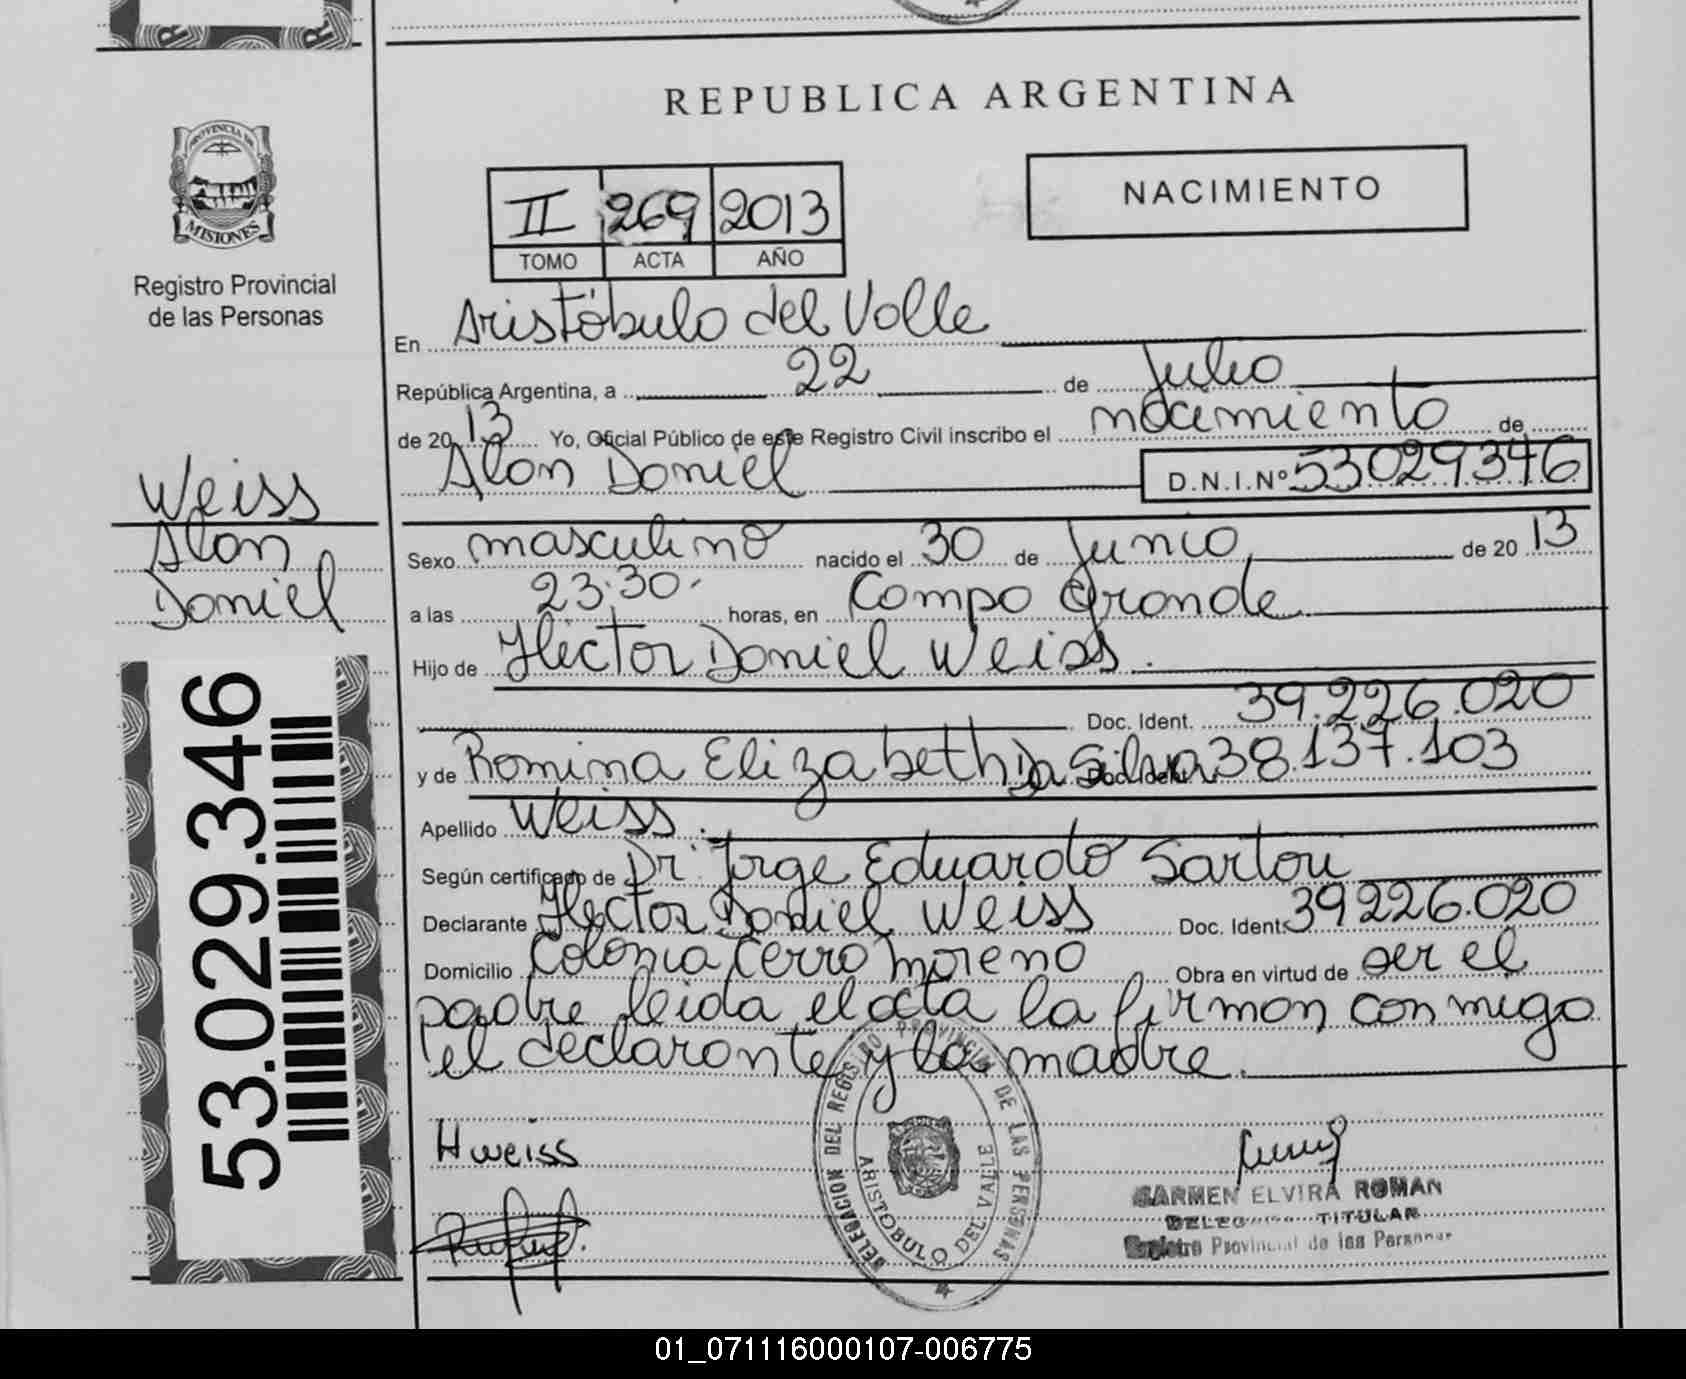 REPUBLICA ARGENTINA
PROVINCIA DE
MISIONES
Registro Provincial
de las Personas
II 269 2013
TOMO ACTA AÑO
NACIMIENTO
En Aristóbulo del Valle
República Argentina, a 22 de Julio
de 2013 Yo, Oficial Público de este Registro Civil inscribo el nacimiento de
Alan Daniel D.N.I.Nº 53029346
Weiss
Alan
Daniel
53.029.346
Sexo masculino nacido el 30 de Junio de 2013
a las 23:30. horas, en Campo Grande
Hijo de Héctor Daniel Weiss.
Doc. Ident. 39.226.020
y de Romina Elizabeth Da Silva Doc. Ident. 38.137.103
Apellido Weiss.
Según certificado de Dr. Jorge Eduardo Sartori
Declarante Héctor Daniel Weiss Doc. Ident. 39226.020
Domicilio Colonia Cerro Moreno Obra en virtud de ser el
padre leida el acta la firman conmigo
el declarante y la madre.
H weiss
DELEGACION DEL REGISTRO PROVINCIAL DE LAS PERSONAS
ARISTOBULO DEL VALLE
CARMEN ELVIRA ROMAN
DELEGADA TITULAR
Registro Provincial de las Personas
01_071116000107-006775